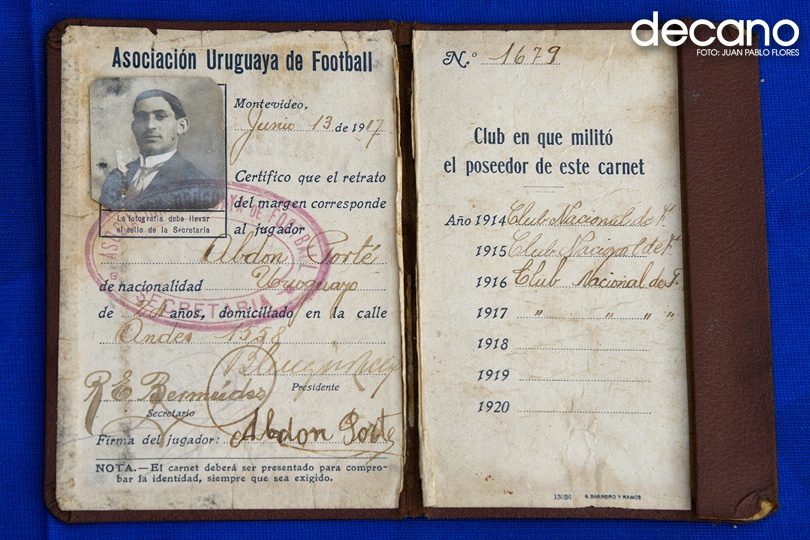 decano
FOTO: JUAN PABLO FLORES
Asociación Uruguaya de Football
Montevideo,
Junio 13 de 1917
Certifico que el retrato
del margen corresponde
al jugador
La fotografía debe llevar
el sello de la Secretaria
Abdon Porte
de nacionalidad Uruguayo
de años, domiciliado en la calle
Andes
Presidente
R E Bermúdez
Secretario
Firma del jugador: Abdon Porte
NOTA.—El carnet deberá ser presentado para compro-
bar la identidad, siempre que sea exigido.
ASOCIACIÓN URUGUAYA DE FOOTBALL
SECRETARIA
N.º 1679
Club en que militó
el poseedor de este carnet
Año 1914 Club Nacional de F.
1915 Club Nacional de F.
1916 Club Nacional de F.
1917 " " " "
1918
1919
1920
13036 A. BARREIRO Y RAMOS